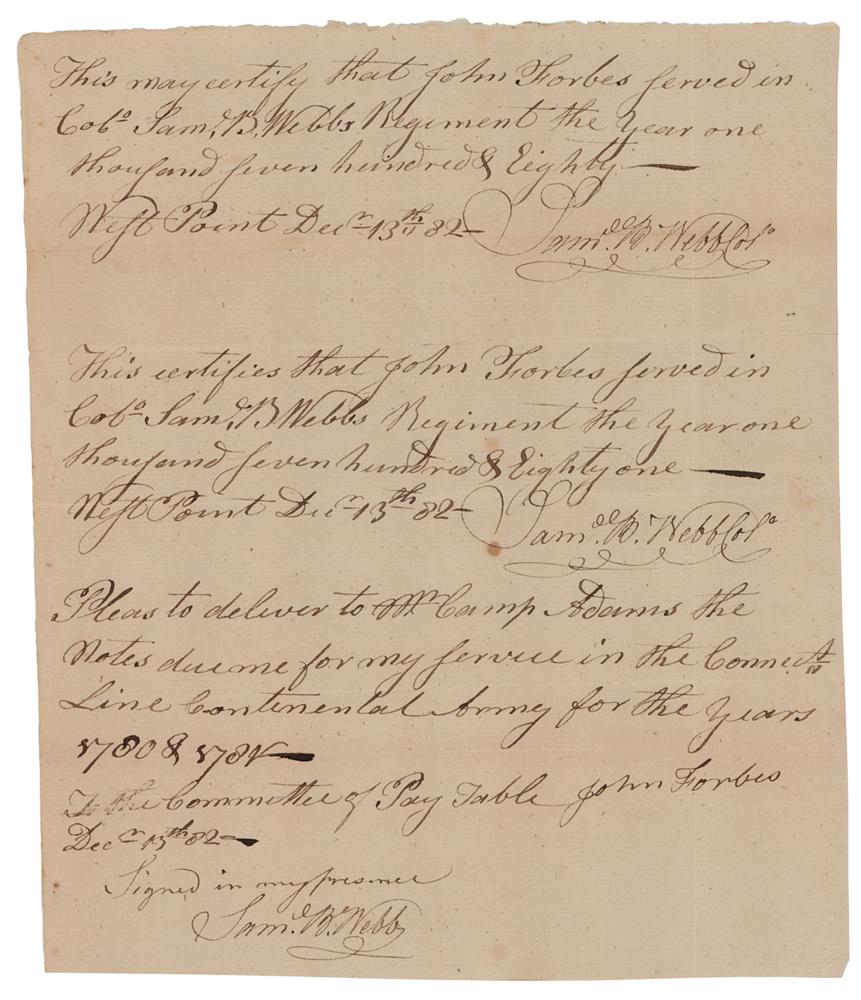 This may certify that John Forbes served in
Colo. Saml. B. Webbs Regiment the Year one
thousand seven hundred & Eighty —
West Point Decr. 13th 82 — Saml. B. Webb Colo.
This certifies that John Forbes served in
Colo. Saml. B Webbs Regiment the Year one
thousand seven hundred & Eighty one —
West Point Decr. 13th 82 — Saml. B. Webb Colo.
Pleas to deliver to Mr Camp Adams the
Notes due me for my service in the Connect.
Line Continental Army for the Years
1780 & 1781 —
To the Committee of Pay Table John Forbes
Decr. 13th 82 —
Signed in my presence
Saml. B. Webb